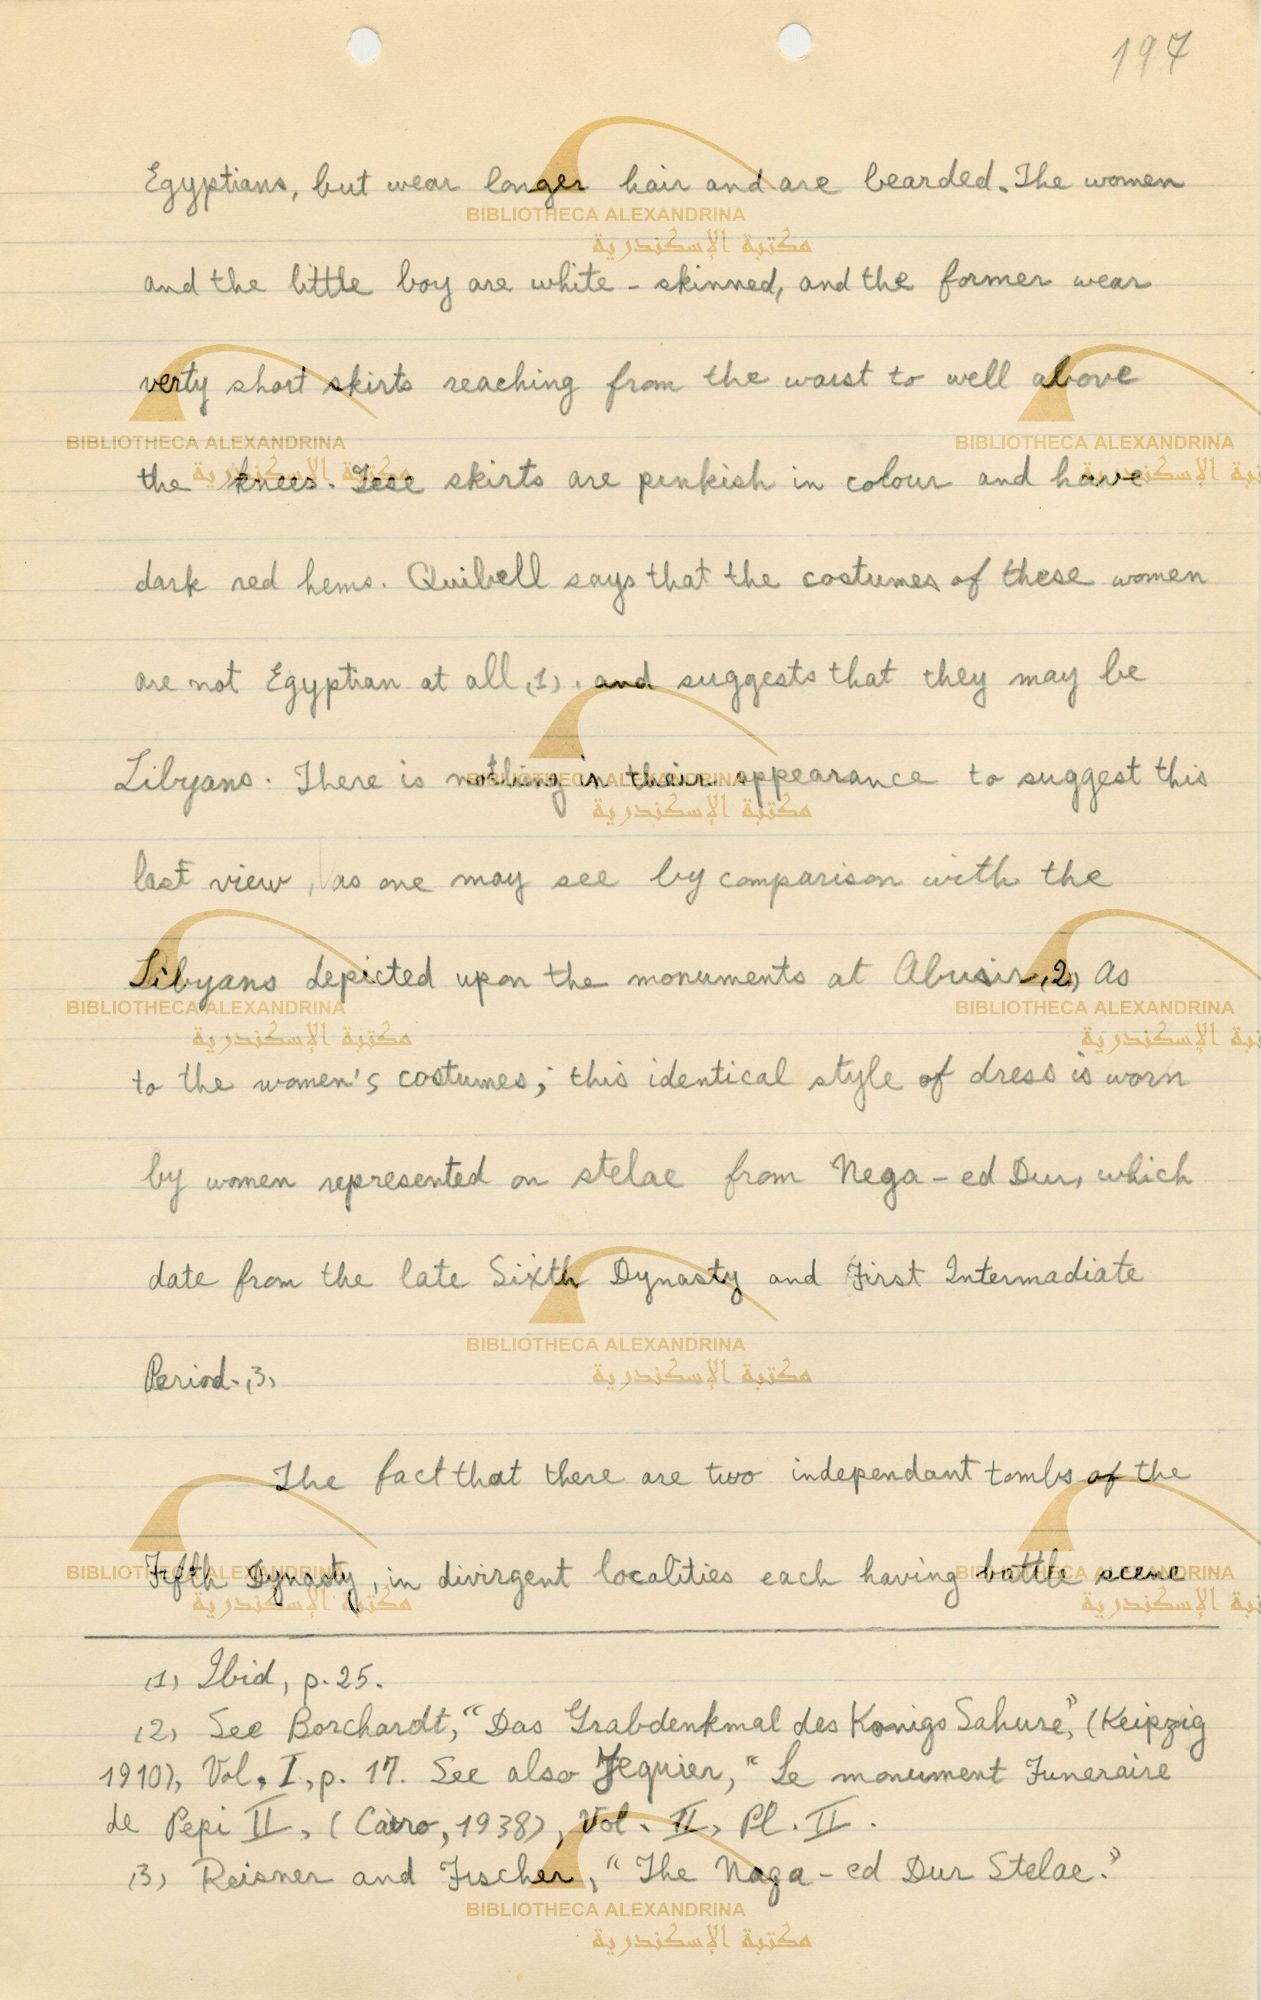 197
Egyptians, but wear longer hair and are bearded. The women
and the little boy are white - skinned, and the former wear
verty short skirts reaching from the waist to well above
the knees. Tese skirts are pinkish in colour and have
dark red hems. Quibell says that the costumes of these women
are not Egyptian at all (1). and suggests that they may be
Libyans. There is nothing in their appearance to suggest this
last view, as one may see by comparison with the
Libyans depicted upon the monuments at Abusir (2) As
to the women's costumes, this identical style of dress is worn
by women represented on stelae from Nega - ed Dur, which
date from the late Sixth Dynasty and First Intermadiate
Period. (3)
The fact that there are two independant tombs of the
Fifth Dynasty, in divirgent localities each having battle scene
(1) Ibid, p. 25.
(2) See Borchardt, "Das Grabdenkmal des Konigs Sahure", (Keipzig
1910), Vol, I, p. 17. See also Jequier, "Le monument Funeraire
de Pepi II, (Cairo, 1938), Vol. II, Pl. II.
(3) Reisner and Fischer, "The Naga - ed Dur Stelae."
BIBLIOTHECA ALEXANDRINA
مكتبة الإسكندرية